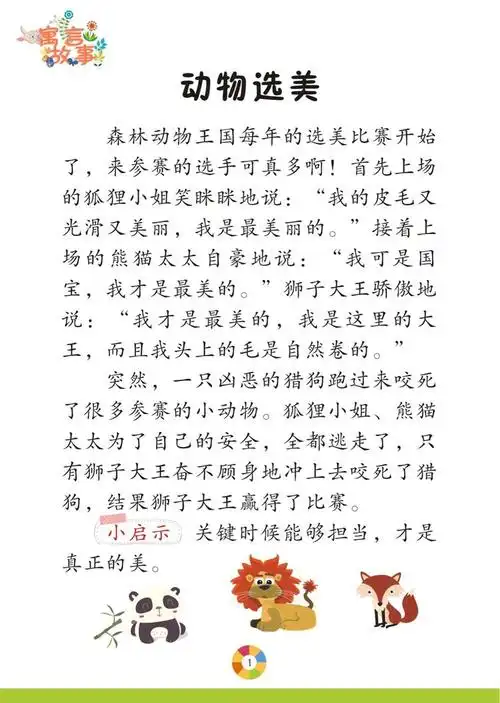 寓言
故事
动物选美
森林动物王国每年的选美比赛开始
了，来参赛的选手可真多啊！首先上场
的狐狸小姐笑眯眯地说：“我的皮毛又
光滑又美丽，我是最美丽的。”接着上
场的熊猫太太自豪地说：“我可是国
宝，我才是最美的。”狮子大王骄傲地
说：“我才是最美的，我是这里的大
王，而且我头上的毛是自然卷的。”
突然，一只凶恶的猎狗跑过来咬死
了很多参赛的小动物。狐狸小姐、熊猫
太太为了自己的安全，全都逃走了，只
有狮子大王奋不顾身地冲上去咬死了猎
狗，结果狮子大王赢得了比赛。
小启示 关键时候能够担当，才是
真正的美。
1